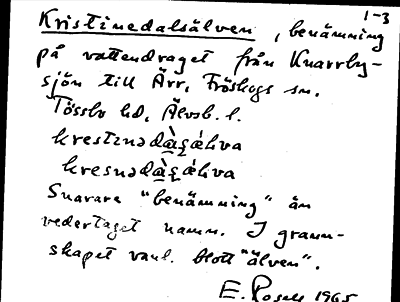 1-3
Kristinedalsälven, benämning
på vattendraget från Knarrby-
sjön till Ärr, Fröskogs sn.
Tössbo hd, Älvsb. l.
krestɩnədàʂǽlva
kresnədàʂǽlva
Snarare "benämning" än
vedertaget namn. I grann-
skapet vanl. blott "älven".
E. 1965